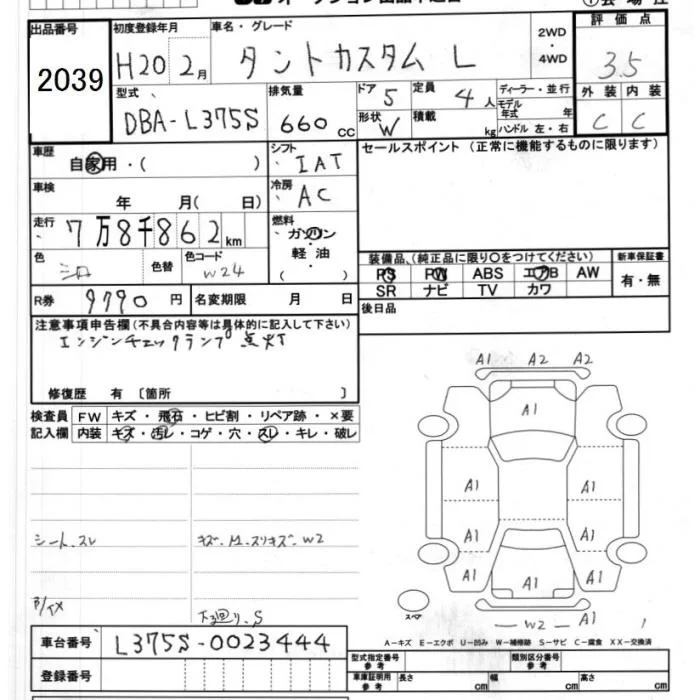 出品番号 初度登録年月 車名・グレード 2WD・4WD 評価点
2039 H20 2月 タントカスタム L 3.5
型式 排気量 ドア 定員 ディーラー・並行 外装 内装
DBA-L375S 660cc 5 4人 モデル年式 年 C C
形状 W 積載 kg ハンドル 左・右
車歴 シフト セールスポイント (正常に機能するものに限ります)
自家用・( ) IAT
車検 年 月( 日) 冷房 AC
走行 7万8千862km 燃料 ガソリン・軽油・( )
色 シロ 色替 色コード W24
装備品 (純正品に限り○をつけてください) 新車保証書
PS PW ABS エアB AW 有・無
SR ナビ TV カワ
R券 9790円 名変期限 月 日 後日品
注意事項申告欄(不具合内容等は具体的に記入して下さい)
エンジンチェックランプ点灯
修復歴 有 〔箇所 〕
検査員 FW キズ・飛石・ヒビ割・リペア跡・×要
記入欄 内装 キズ・汚レ・コゲ・穴・スレ・キレ・破レ
A1 A2 A2
A1
A1 A1
A1 A1
A1 A1 A1
シート、スレ キズ、M、スリキズ、W2
下廻り、S
スペア W2 A1 1
A-キズ E-エクボ U-凹み W-補修跡 S-サビ C-腐食 XX-交換済
車台番号 L375S-0023444
型式指定番号 参考 類別区分番号 参考
登録番号
車庫証明用 参考 長さ cm 幅 cm 高さ cm